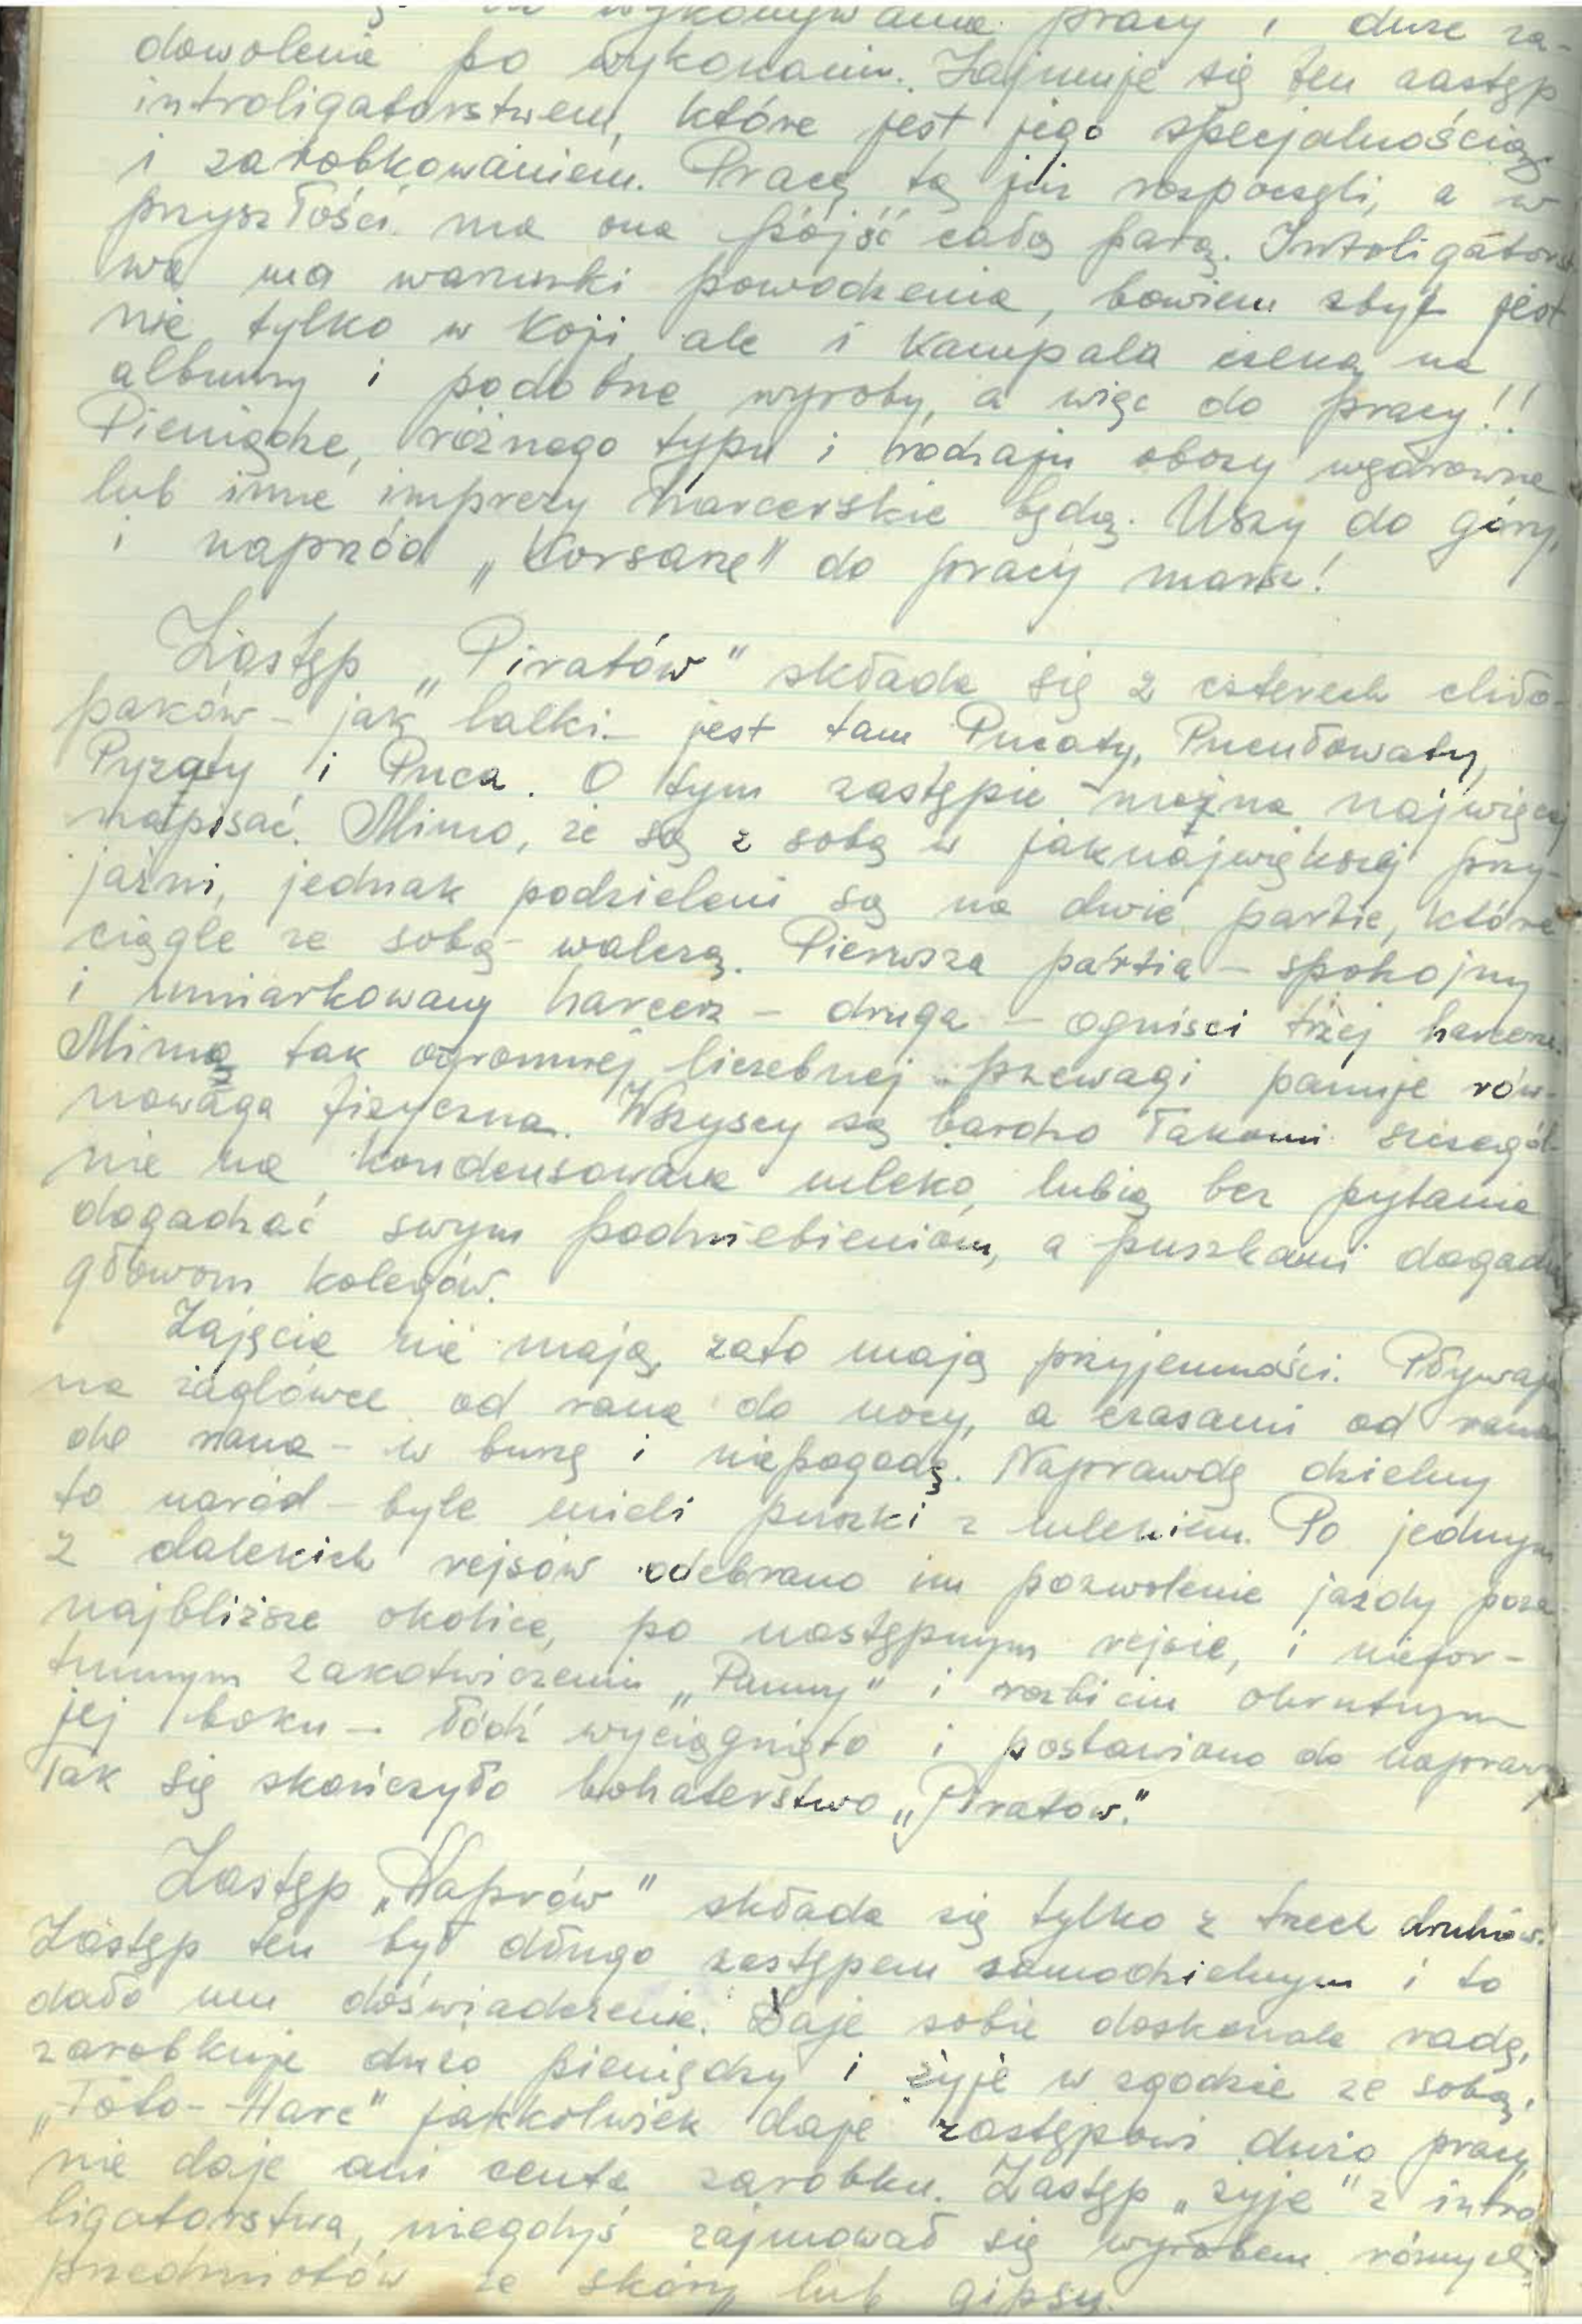 wykonywania pracy i duże za-
dowolenie po wykonaniu. Zajmuje się ten zastęp
introligatorstwem, które jest jego specjalnością
i zarobkowaniem. Pracę tą już rozpoczęli, a w
przyszłości ma ona pójść całą parą. Introligatorst
wo ma warunki powodzenia, bowiem zbyt jest
nie tylko w Koji, ale i Kampala czeka na
albumy i podobne wyroby, a więc do pracy!!
Pieniądze, różnego typu i rodzaju obozy wędrowne
lub inne imprezy harcerskie będą. Uszy do góry,
i naprzód „Korsarze" do pracy marsz!
Zastęp „Piratów" składa się z czterech chło-
paków – jak lalki – jest tam Pucaty, Pucułowaty,
Pyzaty i Puca. O tym zastępie można najwięcej
napisać. Mimo, że są z sobą w jaknajwiększej przy-
jaźni, jednak podzieleni są na dwie partie, które
ciągle ze sobą walczą. Pierwsza partia – spokojny
i umiarkowany harcerz – druga – ogniści trzej harcerze.
Mimo tak ogromnej liczebnej przewagi panuje rów-
nowaga fizyczna. Wszyscy są bardzo łakomi szczegól-
nie na kondensowane mleko, lubią bez pytania
dogadzać swym podniebieniom, a puszkami dogadz
głowom kolegów.
Zajęcia nie mają, zato mają przyjemności. Pływają
na żaglówce od rana do nocy, a czasami od rana
do rana – w burzę i niepogodę. Naprawdę dzielny
to naród – byle mieli puszki z mlekiem. Po jednym
z dalekich rejsów odebrano im pozwolenie jazdy poza
najbliższe okolice, po następnym rejsie, i niefor-
tunnym zakotwiczeniu „Panny" i rozbiciu okrutnym
jej boku – łódź wyciągnięto i postawiono do naprawy
Tak się skończyło bohaterstwo „Piratów."
Zastęp „Waprów" składa się tylko z trzech druhów.
Zastęp ten był długo zastępem samodzielnym i to
dało mu doświadczenie. Daje sobie doskonale radę,
zarobkuje dużo pieniędzy i żyje w zgodzie ze sobą,
„Foto-Harc" jakkolwiek daje zastępowi dużo pracy,
nie daje ani centa zarobku. Zastęp „żyje" z intro
ligatorstwa, niegdyś zajmował się wyrobem różnych
przedmiotów ze skóry lub gipsu.